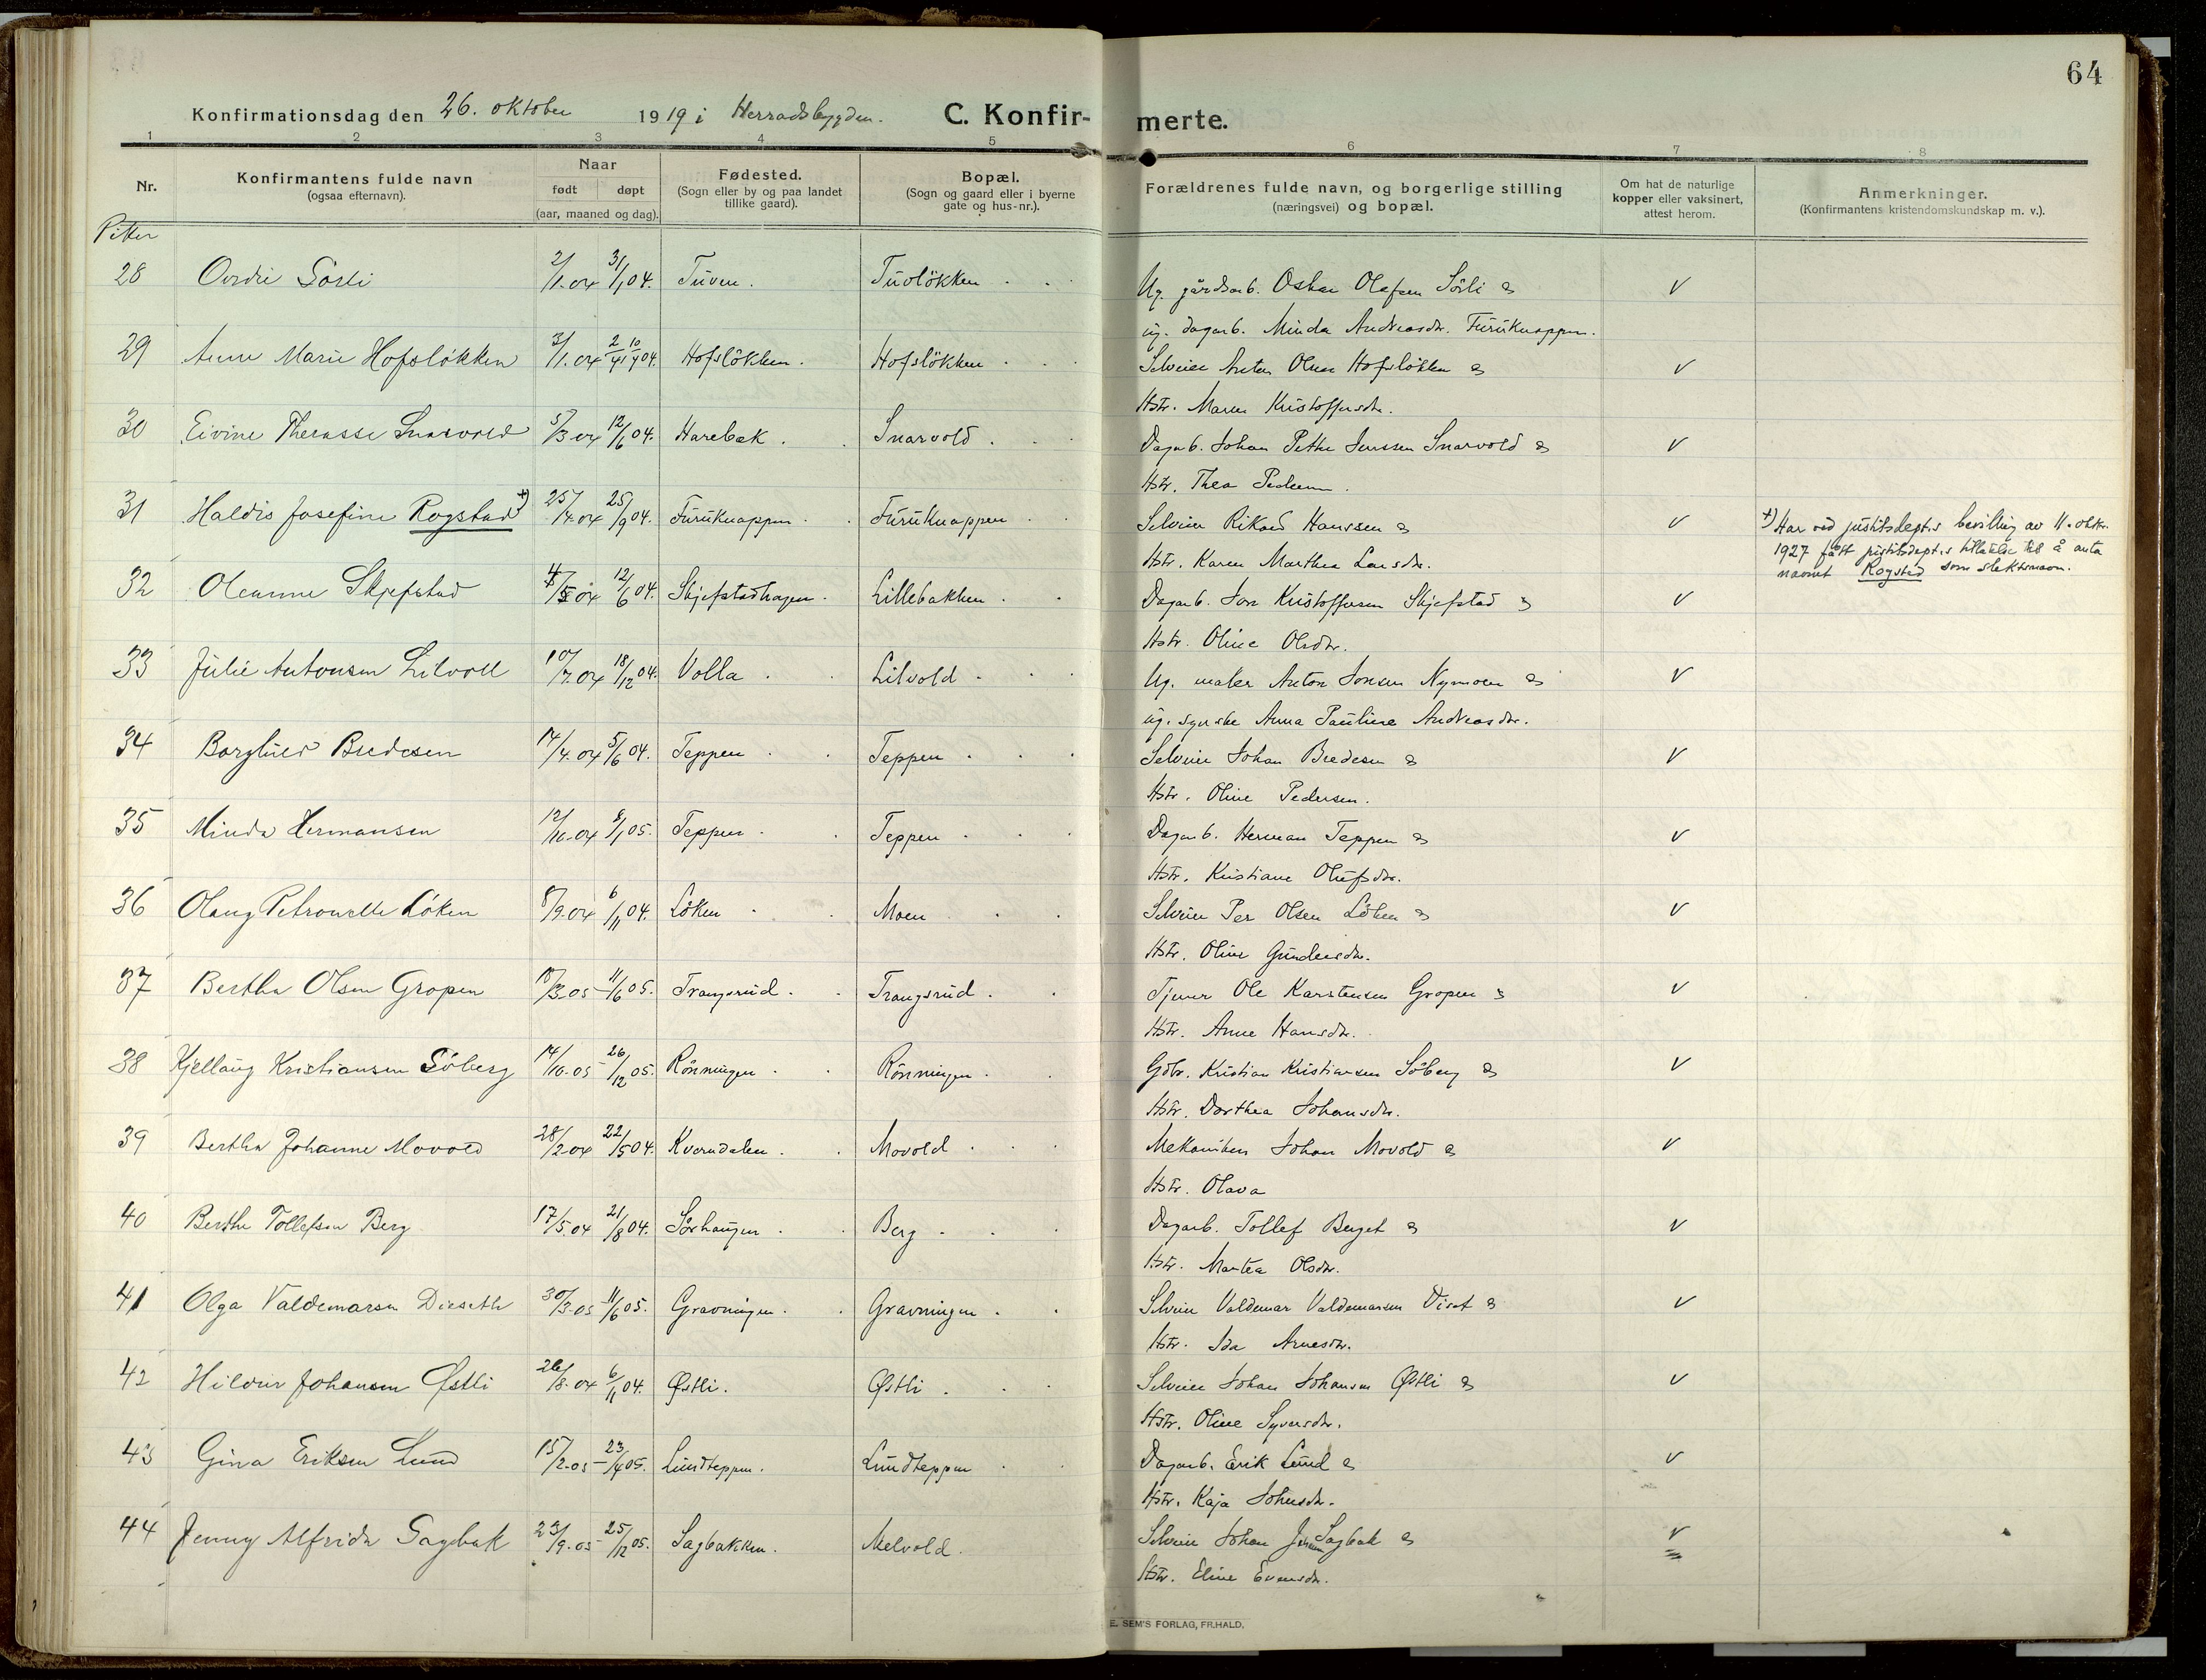 64
Konfirmationsdag den 26. oktober 1919 i Herradsbygden. C. Konfirmerte.
1 2 3 4 5 6 7 8
Nr.
Konfirmantens fulde navn
(ogsaa efternavn).
Naar
født døpt
(aar, maaned og dag).
Fødested.
(Sogn eller by og paa landet
tillike gaard).
Bopæl.
(Sogn og gaard eller i byerne
gate og hus-nr.).
Forældrenes fulde navn, og borgerlige stilling
(næringsvei) og bopæl.
Om hat de naturlige
kopper eller vaksinert,
attest herom.
Anmerkninger.
(Konfirmantens kristendomskundskap m. v.).
Piker
28 Ovidie Sörli 2/1.04 31/1 04. Tuven. Tuvlökken Ug. gårdsarb. Oskar Olafsen Sörli &
ug. dagarb. Minda Andreasdr. Furuknappen. v
29 Anne Marie Hofslökken 3/1.04 10/4 04. Hofslökken. Hofslökken Selveier Anton Olsen Hofslökken &
Hstr. Maren Kristoffersdr. v
30 Eivine Therasse Snarvold 5/3.04 12/6 04. Harebek. Snarvold. Dagarb. Johan Petter Jenssen Snarvold &
Hstr. Thea Pedersen. v
31 Haldis Josefine Rogstad +) 25/4.04 25/9 04. Furuknappen. Furuknappen Selveier Rikard Hanssen &
Hstr. Karen Marthea Larsdr. v
+) Har ved justitsdept.s bevilling av 11. oktbr.
1927 fått justitsdept.s tillatelse til å anta
navnet Rogstad som slektsnavn.
32 Oleanne Skjefstad 04 12/6 04. Skjefstadhagen. Lillebakken. Dagarb. Jon Kristoffersen Skjefstad &
Hstr. Oline Olsdr. v
33 Julie Antonsen Lilvold 10/7.04 18/12 04. Volla Lilvold Ug. maler Anton Jonsen Nymoen &
ug. syerske Anna Pauline Andreasdr. v
34 Borghild Bredesen 14/4.04 5/6 04. Teppen Teppen Selveier Johan Bredesen &
Hstr. Oline Pedersen. v
35 Minda Hermansen 12/10.04 8/1 05. Teppen Teppen Dagarb. Herman Teppen &
Hstr. Kristiane Olufsdr. v
36 Olaug Petronelle Löken 8/9.04 6/11 04. Löken Moen Selveier Per Olsen Löken &
Hstr. Oline Gundersdr. v
37 Bertha Olsen Gropen 18/3.05 11/6 05. Trangsrud. Trangsrud. Tjener Ole Karstensen Gropen &
Hstr. Anne Hansdr. v
38 Kjellaug Kristiansen Söberg 14/10.05 26/12 05. Rönningen Rönningen Gdbr. Kristian Kristiansen Söberg &
Hstr. Dorthea Johansdr. v
39 Bertha Johanne Movold 28/2 04 22/5 04. Kverndalen. Movold Mekaniker Johan Movold &
Hstr. Olava v
40 Berthe Tollefsen Berg 17/5.04 21/8 04. Sörhaugen Berg Dagarb. Tollef Berget &
Hstr. Martea Olsdr. v
41 Olga Valdemarsen Dieseth 30/3.05 11/6 05. Gravningen. Gravningen. Selveier Valdemar Valdemarsen Diset &
Hstr. Ida Arnesdr. v
42 Hildur Johansen Østli 26/8.04 6/11 04. Østli. Østli Selveier Johan Johansen Østli &
Hstr. Oline Syversdr. v
43 Gina Eriksen Lund 15/2.05 23/4 05. Lundteppen. Lundteppen Dagarb. Erik Lund &
Hstr. Kaja Johnsdr. v
44 Jenny Alfrida Sagbak 23/9.05 25/12 05. Sagbakken. Melvold. Selveier Johan Johnsen Sagbak &
Hstr. Eline Evensdr. v
E. SEM'S FORLAG, FR.HALD.